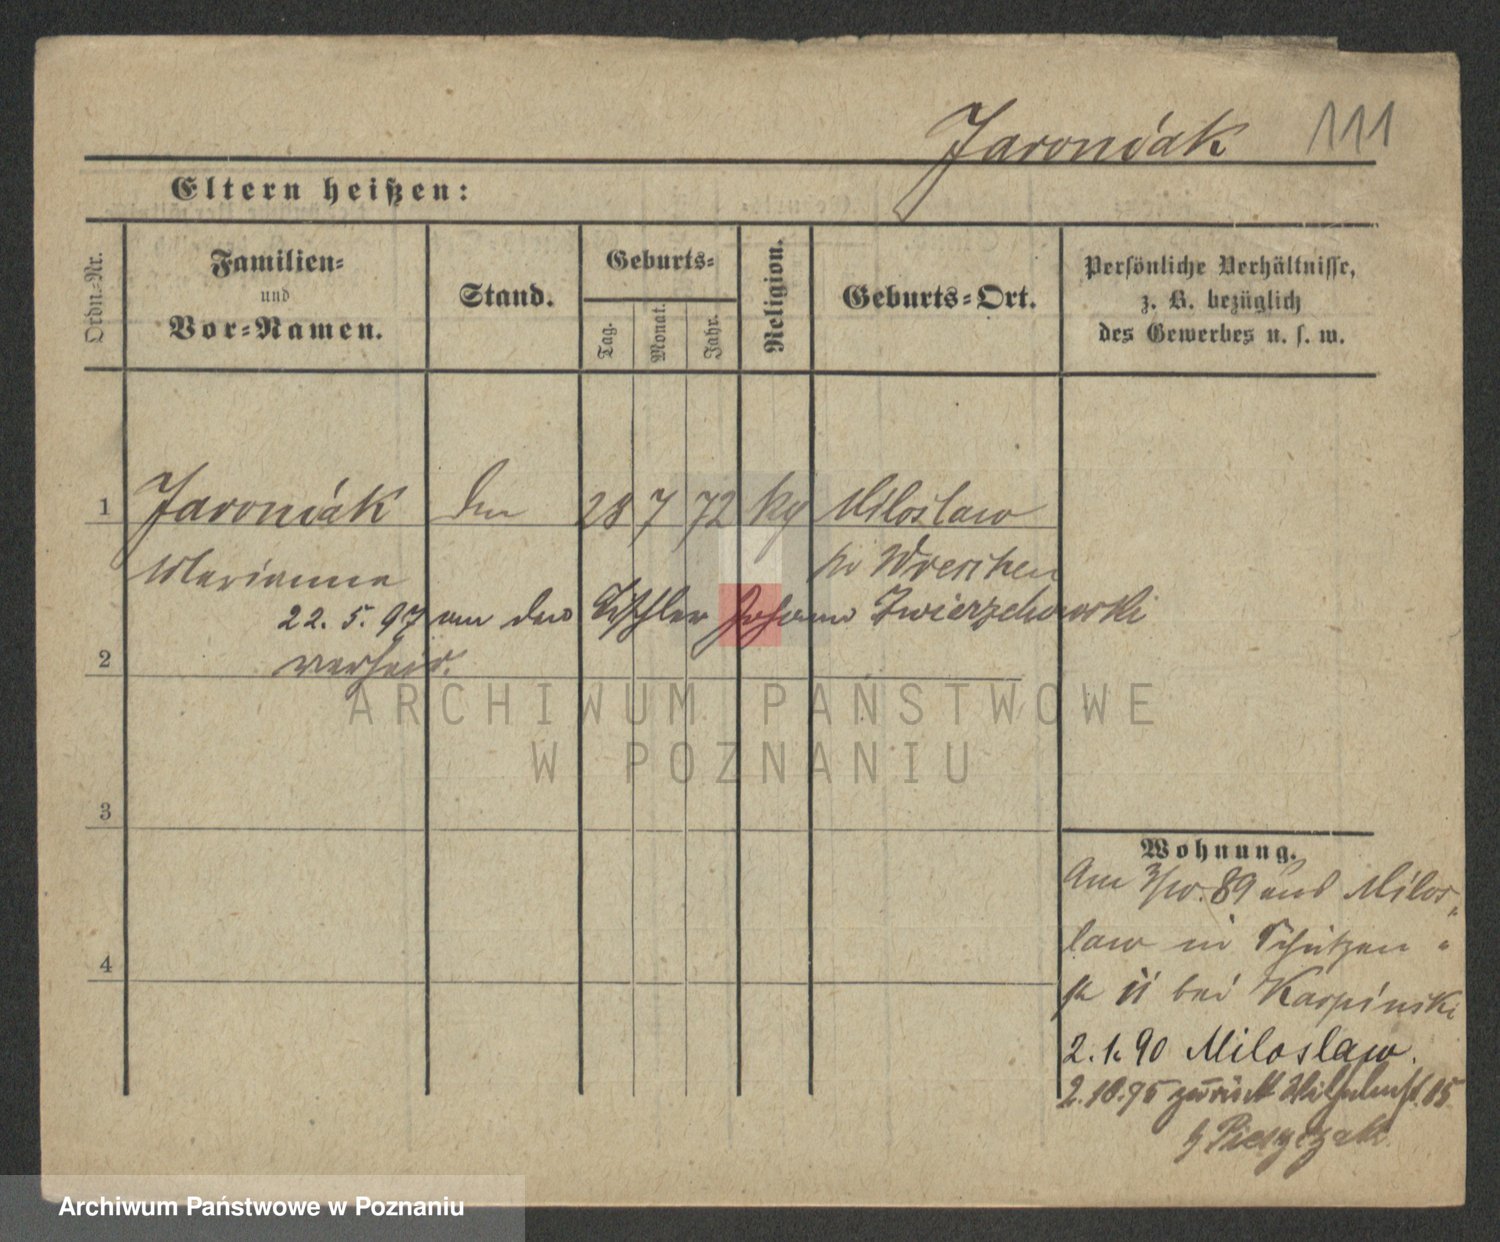 Jaroniak 111
Eltern heißen:
Ordn.-Nr.
Familien-
und
Vor-Namen.
Stand.
Geburts-
Tag.
Monat.
Jahr.
Religion.
Geburts-Ort.
Persönliche Verhältnisse,
z. B. bezüglich
des Gewerbes u. s. w.
1 Jaroniak 28 7 72 Miloslaw
Marianna Wreschen
22. 5. 97 an den Tischler Johann Zwierzchowski
2 verheir.
3
4
Wohnung.
Am 3/10. 89 aus Milos-
law in Schützen-
bei Karpinski
2. 1. 90 Miloslaw.
2. 10. 95 zurück Wilhelmst. 15
ARCHIWUM PAŃSTWOWE
W POZNANIU
Archiwum Państwowe w Poznaniu